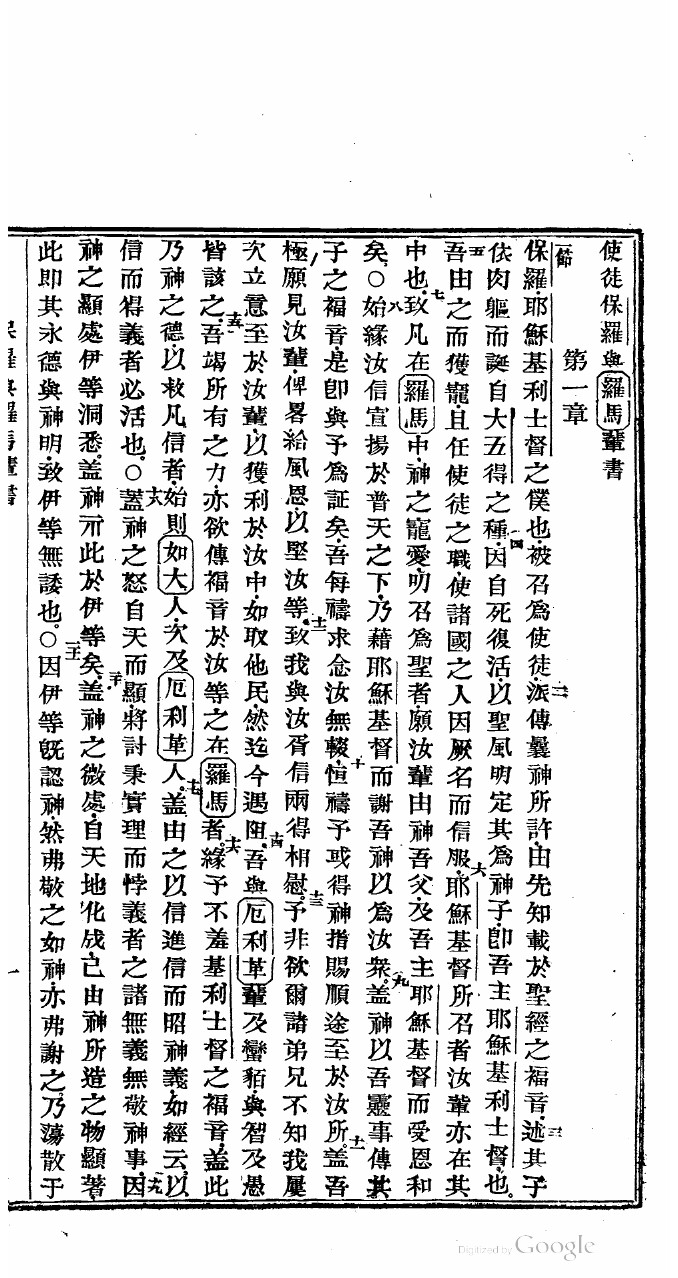 使徒保羅與羅馬輩書
第一章
一節
保羅耶穌基利士督之僕也被召爲使徒派傳曩神所許由先知載於聖經之福音述其子
依肉軀而誕自大五得之種因自死復活以聖風明定其爲神子卽吾主耶穌基利士督也。
吾由之而獲寵且任使徒之職使諸國之人因厥名而信服耶穌基督所召者汝輩亦在其
中也致凡在羅馬中神之寵愛叨召爲聖者願汝輩由神吾父及吾主耶穌基督而受恩和
矣○始緣汝信宣揚於普天之下乃藉耶穌基督而謝吾神以爲汝衆蓋神以吾靈事傳其
子之福音是卽與予爲証矣吾每禱求念汝無輟恒禱予或得神指賜順途至於汝所蓋吾
極願見汝輩俾畧給風恩以堅汝等致我與汝胥信兩得相慰予非欲爾諸弟兄不知我屢
次立意至於汝輩以獲利於汝中如取他民然迄今遇阻吾與厄利革輩及蠻貊與智及愚
皆該之吾竭所有之力亦欲傳福音於汝等之在羅馬者緣予不羞基利士督之福音蓋此
乃神之德以救凡信者始則如大人次及厄利革人蓋由之以信進信而昭神義如經云以
信而得義者必活也○蓋神之怒自天而顯將討秉實理而悖義者之諸無義無敬神事因
神之顯處伊等洞悉蓋神示此於伊等矣蓋神之微處自天地化成已由神所造之物顯著
此卽其永德與神明致伊等無諉也○因伊等旣認神然弗敬之如神亦弗謝之乃蕩散于
保羅與羅馬輩書
一
Digitized by Google